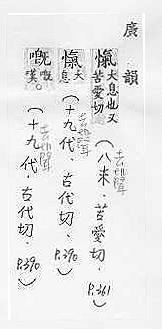 廣韻
愾 大息也又苦愛切 去聲 (八未.苦愛切.P.361)
愾 大息 去聲 (十九代.古代切.P.390)
嘅 嘆。 去聲 (十九代 古代切.P.390)